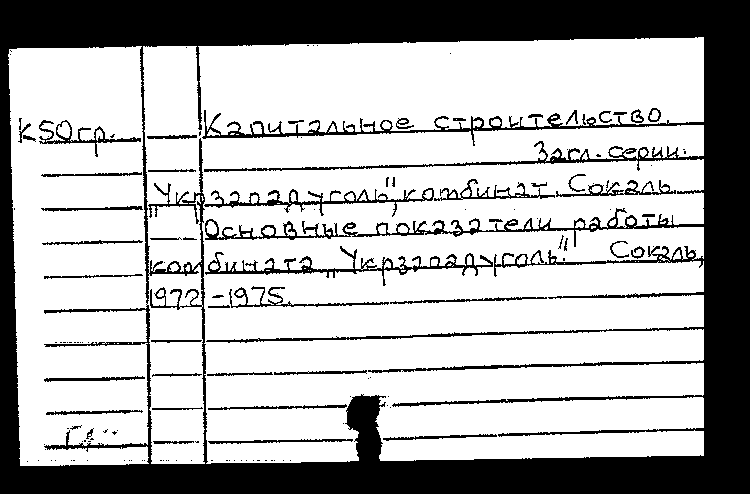 К50гр. Капитальное строительство.
Загл. серии.
"Укрзападуголь", комбинат. Сокаль
Основные показатели работы
комбината „Укрзападуголь". Сокаль,
1972-1975.